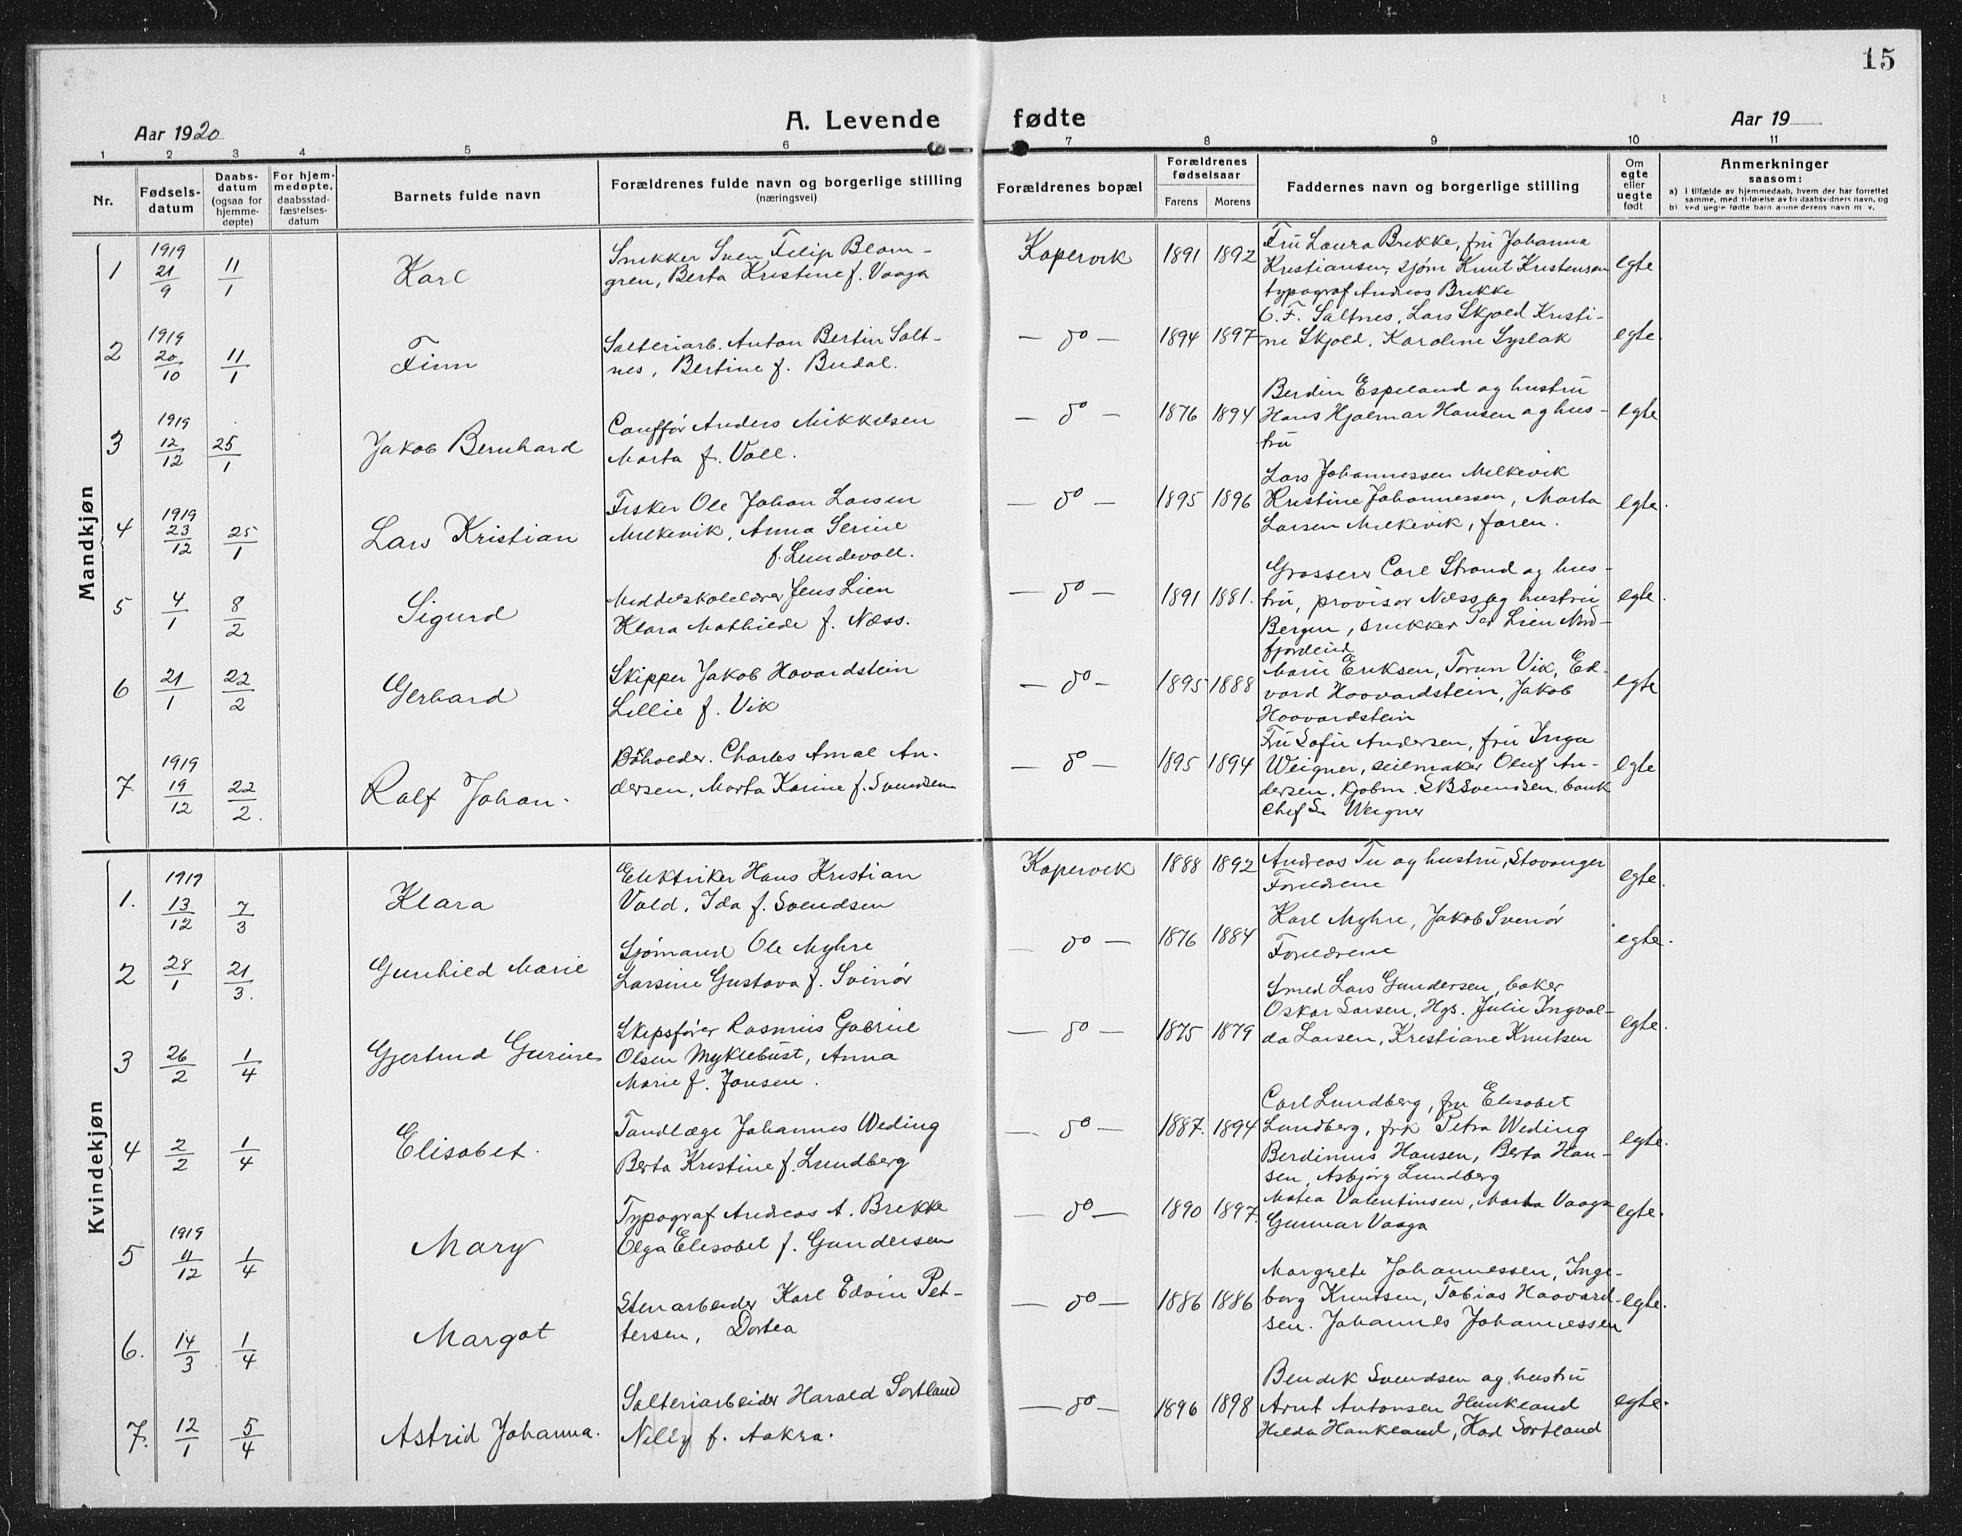 15
A. Levende fødte
Aar 1920
Aar 19
1 2 3 4 5 6 7 8 9 10 11
Nr.
Fødsels-
datum
Daabs-
datum
(ogsaa for
hjemme-
døpte)
For hjem-
medøpte,
daabsstad-
fæstelses-
datum
Barnets fulde navn
Forældrenes fulde navn og borgerlige stilling
(næringsvei)
Forældrenes bopæl
Forældrenes
fødselsaar
Farens Morens
Faddernes navn og borgerlige stilling
Om
egte
eller
uegte
født
Anmerkninger
saasom:
a) I tilfælde av hjemmedaab, hvem der har forrettet
samme, med tilføielse av to daabsvidners navn, og
b) ved uegte fødte barn anmelderens navn m. v.
Mandkjøn
1
1919
21/9
11/1
Karl
Snekker Sven Filip Blom-
gren, Berta Kristine f. Vaaga
Kopervik
1891 1892
Fru Laura Brekke, fru Johanna
Kristiansen, sjøm Knut Kristensen
typograf Andreas Brekke
egte
2
1919
20/10
11/1
Finn
Salteriarb. Anton Bertin Salt-
nes, Bertine f. Budal.
— do —
1894 1897
O. F. Saltnes, Lars Skjold Kristi-
ne Skjold, Karoline Syslak
egte.
3
1919
12/12
25/1
Jakob Bernhard
Chauffør Anders Mikkelsen
Marta f. Voll.
— do —
1876 1894
Berdin Espeland og hustru
Hans Hjalmar Hansen og hus-
tru
egte
4
1919
23/12
25/1
Lars Kristian
Fisker Ole Johan Larsen
Melkevik, Anna Serine
f. Lundevoll.
— do —
1895 1896
Lars Johannessen Melkevik
Kristine Johannessen, Marta
Larsen Melkevik, faren.
egte.
5
4/1
8/2
Sigurd
Middelskolelærer Jens Lien
Klara Mathilde f. Næss.
— do —
1891 1881.
Grosserer Carl Strand og hus-
tru, provisor Næss og hustru
Bergen, snekker Per Lien Nord-
fjordeid
egte.
6
21/1
22/2
Gerhard
Skipper Jakob Hovardstein
Lillie f. Vik
— do —
1895 1888
Marie Eriksen, Torun Vik, Ed-
vard Hoovardstein, Jakob
Hoovardstein
egte
7
1919
19/12
22/2.
Ralf Johan.
Bøholder. Charles Amal An-
dersen, Marta Karine f. Svendsen
— do —
1895 1894
Fru Sofie Andersen, fru Inga
Weigner, seilmaker Oluf An-
dersen, kjøbm. S B Svendsen. bank
chef S. Weigner
egte
Kvindekjøn
1.
1919
13/12
7/3
Klara
Elektriker Hans Kristian
Vold, Ida f. Svendsen
Kopervik
1888 1892
Andreas Tu og hustru, Stavanger
Foreldrene
egte.
2
28/1
21/3.
Gunhild Marie
Sjømand Ole Myhre
Larsine Gustava f. Svinør
— do —
1876 1884
Karl Myhre, Jakob Svinør
Foreldrene
egte.
3
26/2
1/4
Gjertrud Gurine
Skipsfører Rasmus Gabriel
Olsen Myklebust, Anna
Marie f. Jonsen.
— do —
1875 1879
Smed Lars Gundersen, baker
Oskar Larsen, Hgs. Julie Ingval-
da Larsen, Kristiane Knutsen
egte.
4
2/2
1/4
Elisabet.
Tandlæge Johannes Weding
Berta Kristine f. Lundberg
— do —
1887. 1894
Carl Lundberg, fru Elisabet
Lundberg, frk Petra Weding
Berdinus Hansen, Berta Han-
sen, Asbjørg Lundberg
egte.
5
1919
11/12
1/4
Mary
Typograf Andreas A. Brekke
Olga Elisabet f. Gundersen
— do —
1890 1897.
Matea Valentinsen, Marta Vaaga
Gunnar Vaaga
egte.
6.
14/3
1/4
Margot
Stenarbeider Karl Edvin Pet-
tersen, Dortea
— do —
1886 1886
Margrete Johannessen, Inge-
borg Knutsen, Tobias Hoovard-
sen. Johannes Johannessen
egte.
7.
12/1
5/4
Astrid Johanna.
Salteriarbeider Harald Sortland
Nelly f. Aakra.
— do —
1896 1898
Bendik Svendsen og hustru
Arnt Antonsen Hankland
Hilda Hankland, Kad Sortland
egte.